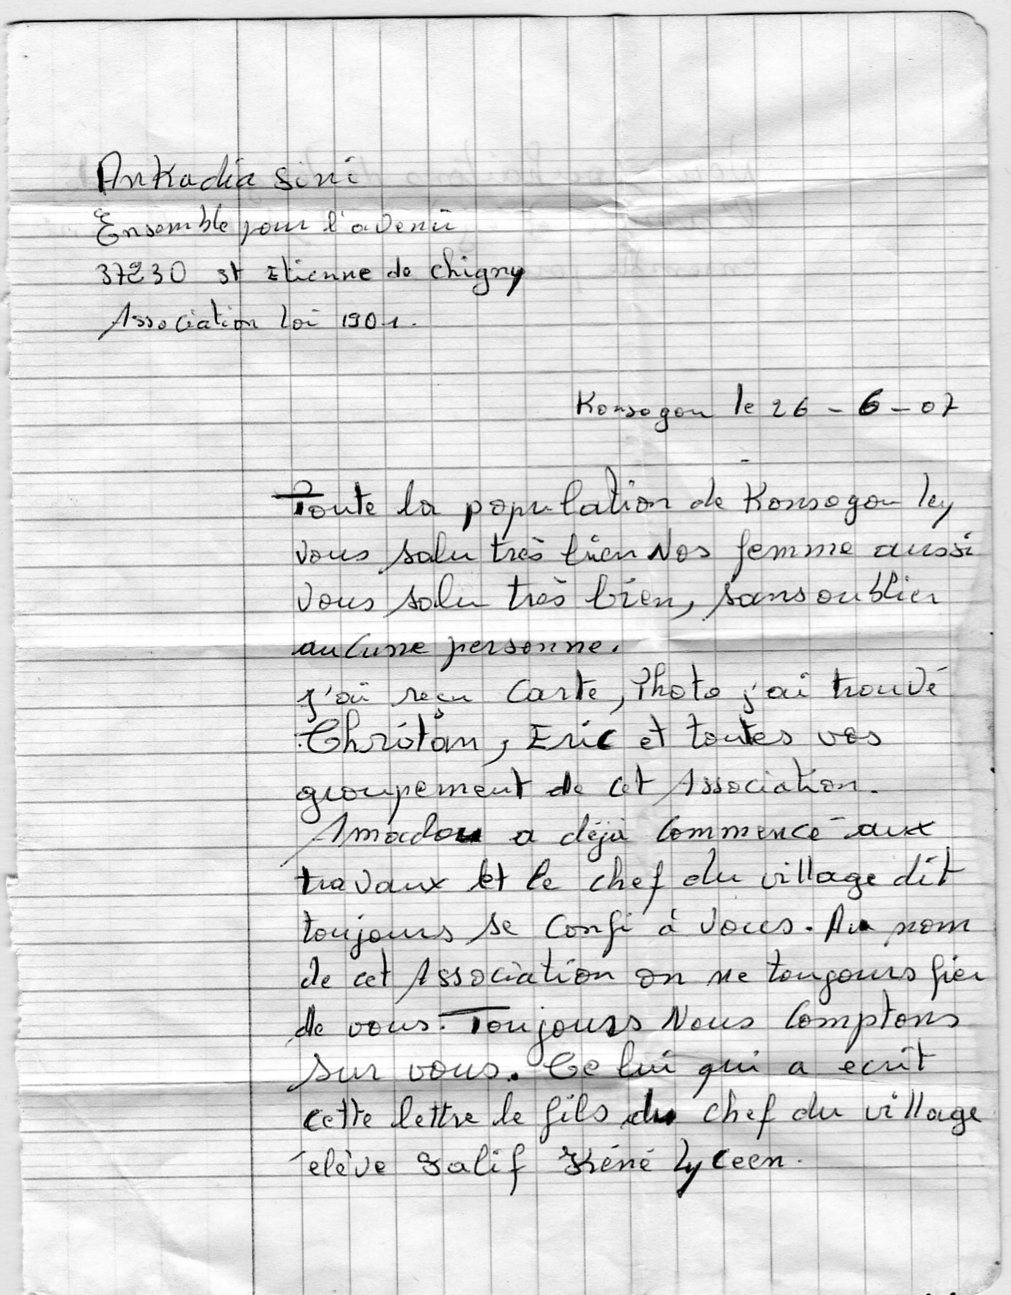 Ankadia sini
Ensemble pour l'avenir
37230 st Etienne de chigny
Association loi 1901.
Konsogou le 26 - 6 - 07
Toute la population de Konsogou ley
vous salu très bien Nos femme aussi
vous salu très bien, sans oublier
aucune personne.
j'ai reçu Carte, Photo j'ai trouvé
Christian, Eric et toutes vos
groupement de cet Association.
Amadou a déjà commencé aux
travaux et le chef du village dit
toujours se confi à vous. Au nom
de cet Association on ne toujours fier
de vous. Toujours Nous Comptons
sur vous. Celui qui a ecrit
cette lettre le fils du chef du village
élève Salif Kéné Lyceen.